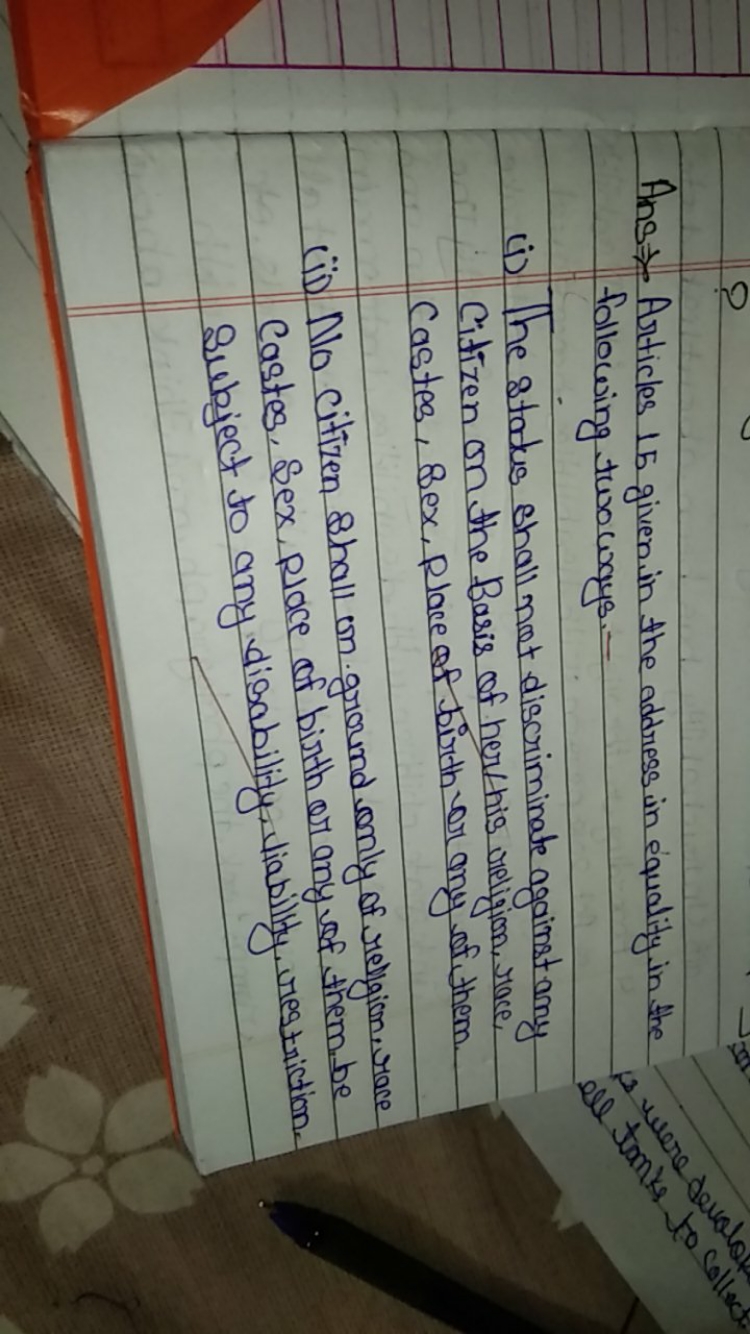 Ans→ Articles 15 given in the address in equality in the
following two ways.-
(i) The states shall not discriminate against any
Citizen on the Basis of her/his religion, race,
Castes, Sex, Place of birth or any of them.
(ii) No citizen shall on ground only of religion, race
Castes, Sex, place of birth or any of them be
Subject to any disability, liability, restriction.
were
ell tanks to collect